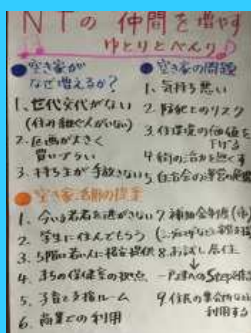 NTの仲間を増やす
ゆとりとへんり
●空き家が
なぜ増えるか?
1、世代交代がない
(住み継ぐ人がいない)
2、区画が大きく
買いづらい
3、持ち主が手放さない
●空き家の問題
1、気持ち悪い
2、防犯上のリスク
3、住環境の価値を
下げる
4、街の活力を無くす
5、自治会の運営の
●空き家活用の提案
1、今いる若者を逃がさない
2、学生に住んでもらう
3、5階に若い人に格安提供
4、まちの保健室の視点、
5、子育て支援ルーム
6、商業での利用
7、補助金制度(市)
8、お試し居住
9、住民の集会所など
利用する